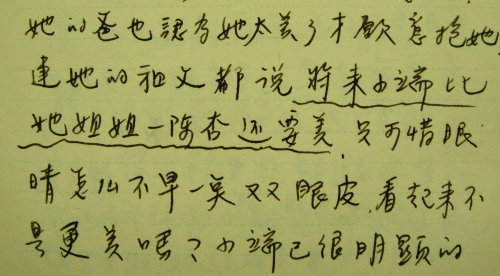 她的爸也認為她太美了才願意抱她,
連她的祖父都說將来小端比
她姐姐一陳杏还要美,只可惜眼
睛怎 不 一 双眼皮,看起来不
是更美嗎?小端已很明顯的